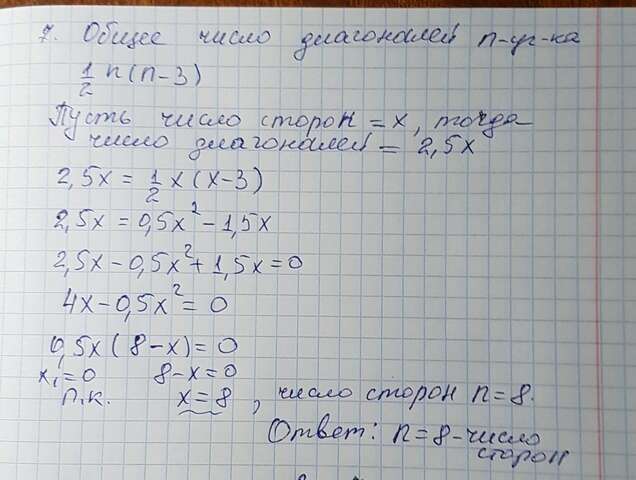 7. Общее число диагоналей n-уг-ка
1/2 n(n-3)
Пусть число сторон = x, тогда
число диагоналей = 2,5x
2,5x = 1/2 x(x-3)
2,5x = 0,5x² - 1,5x
2,5x - 0,5x² + 1,5x = 0
4x - 0,5x² = 0
0,5x(8-x) = 0
x₁=0 8-x=0
п.к. x=8, число сторон n=8.
Ответ: n=8-число
сторон